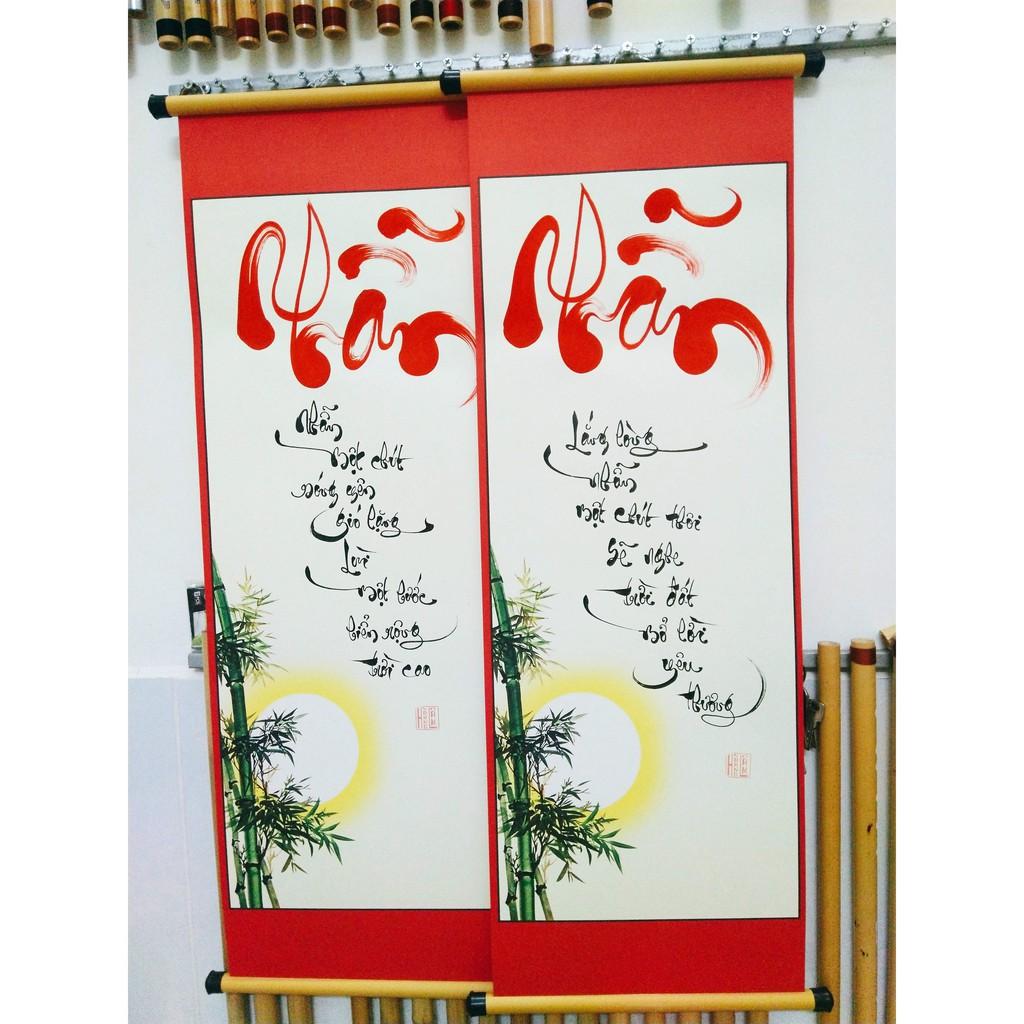 Nhẫn
Nhẫn
một chút
sóng yên
gió lặng
Lùi
một bước
biển rộng
trời cao
Nhẫn
Lắng lòng
nhẫn
một chút thôi
Sẽ nghe
trời đất
mở lời
yêu
thương